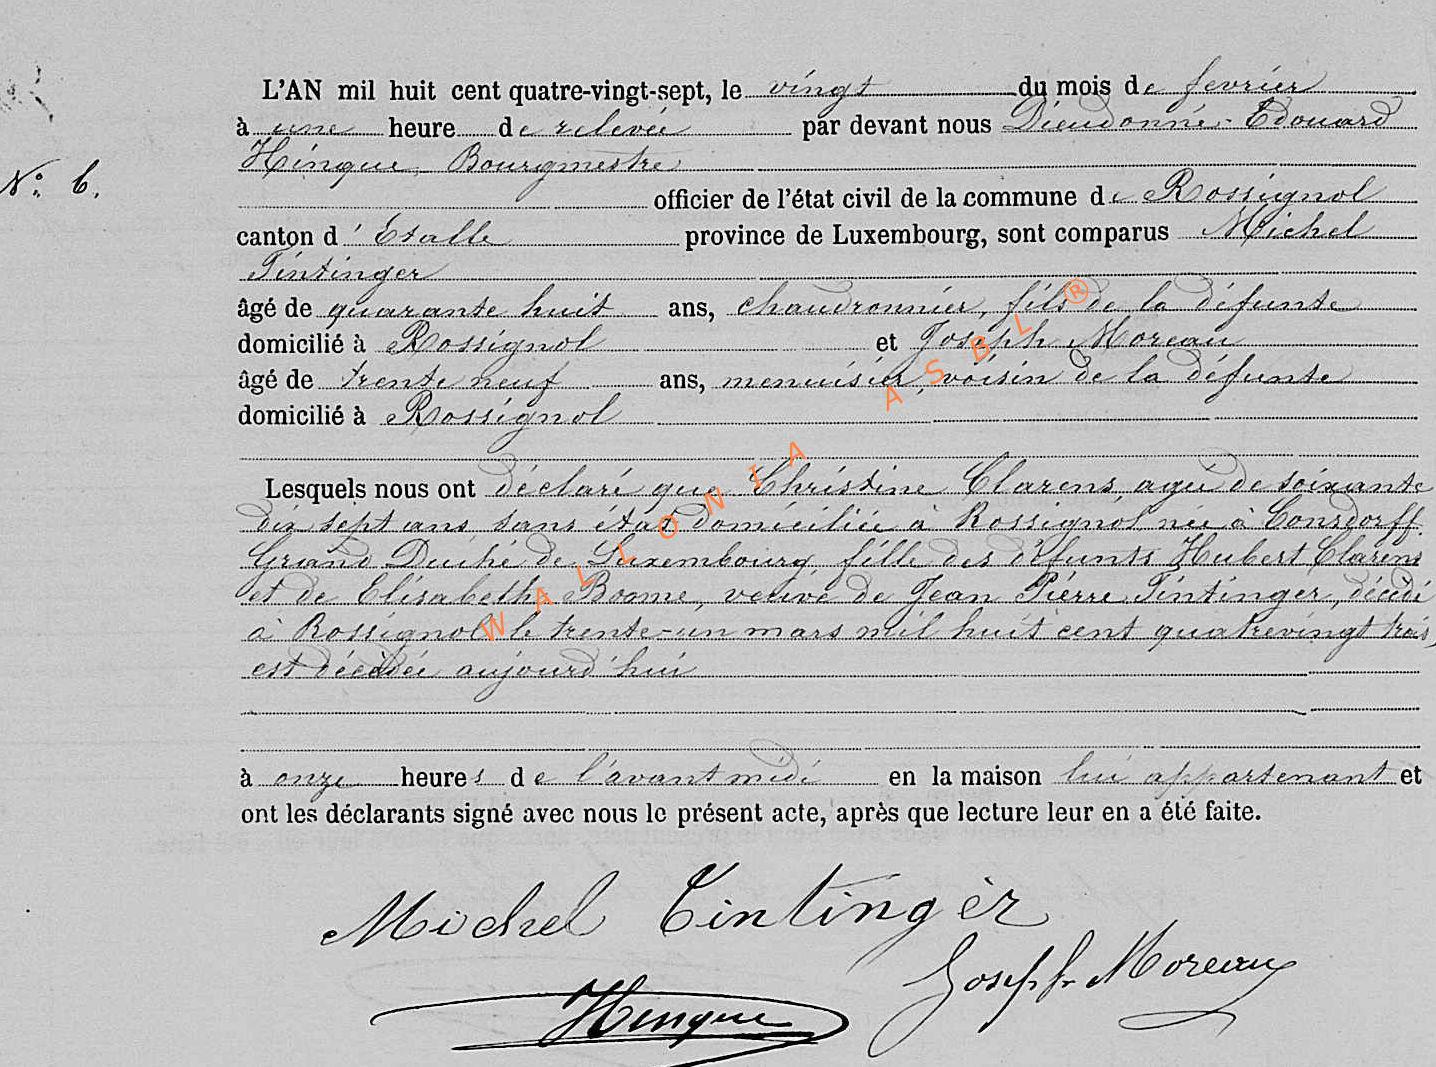 L'AN mil huit cent quatre-vingt-sept, le vingt du mois de fevrier
à une heure de relevée par devant nous Dieudonné-Edouard
Hinque, Bourgmestre
N°. 6.
officier de l'état civil de la commune de Rossignol
canton d'Etalle province de Luxembourg, sont comparus Michel
Tintinger
âgé de quarante huit ans, chaudronnier, fils de la défunte
domicilié à Rossignol et Joseph Moreau
âgé de trente neuf ans, menuisier, voisin de la défunte
domicilié à Rossignol
Lesquels nous ont déclaré que Christine Clarens, agée de soixante
dix sept ans sans état domiciliée à Rossignol née à Consdorff
Grand Duché de Luxembourg fille des défunts Hubert Clarens
et de Elisabeth Boome, veuve de Jean Pierre Tintinger, décédé
à Rossignol le trente-un mars mil huit cent quatrevingt trois,
est décédée aujourd'hui
à onze heures de l'avant midi en la maison lui appartenant et
ont les déclarants signé avec nous le présent acte, après que lecture leur en a été faite.
Michel Tintinger
Joseph Moreau
Hinque
WALLONIA ASBL ®